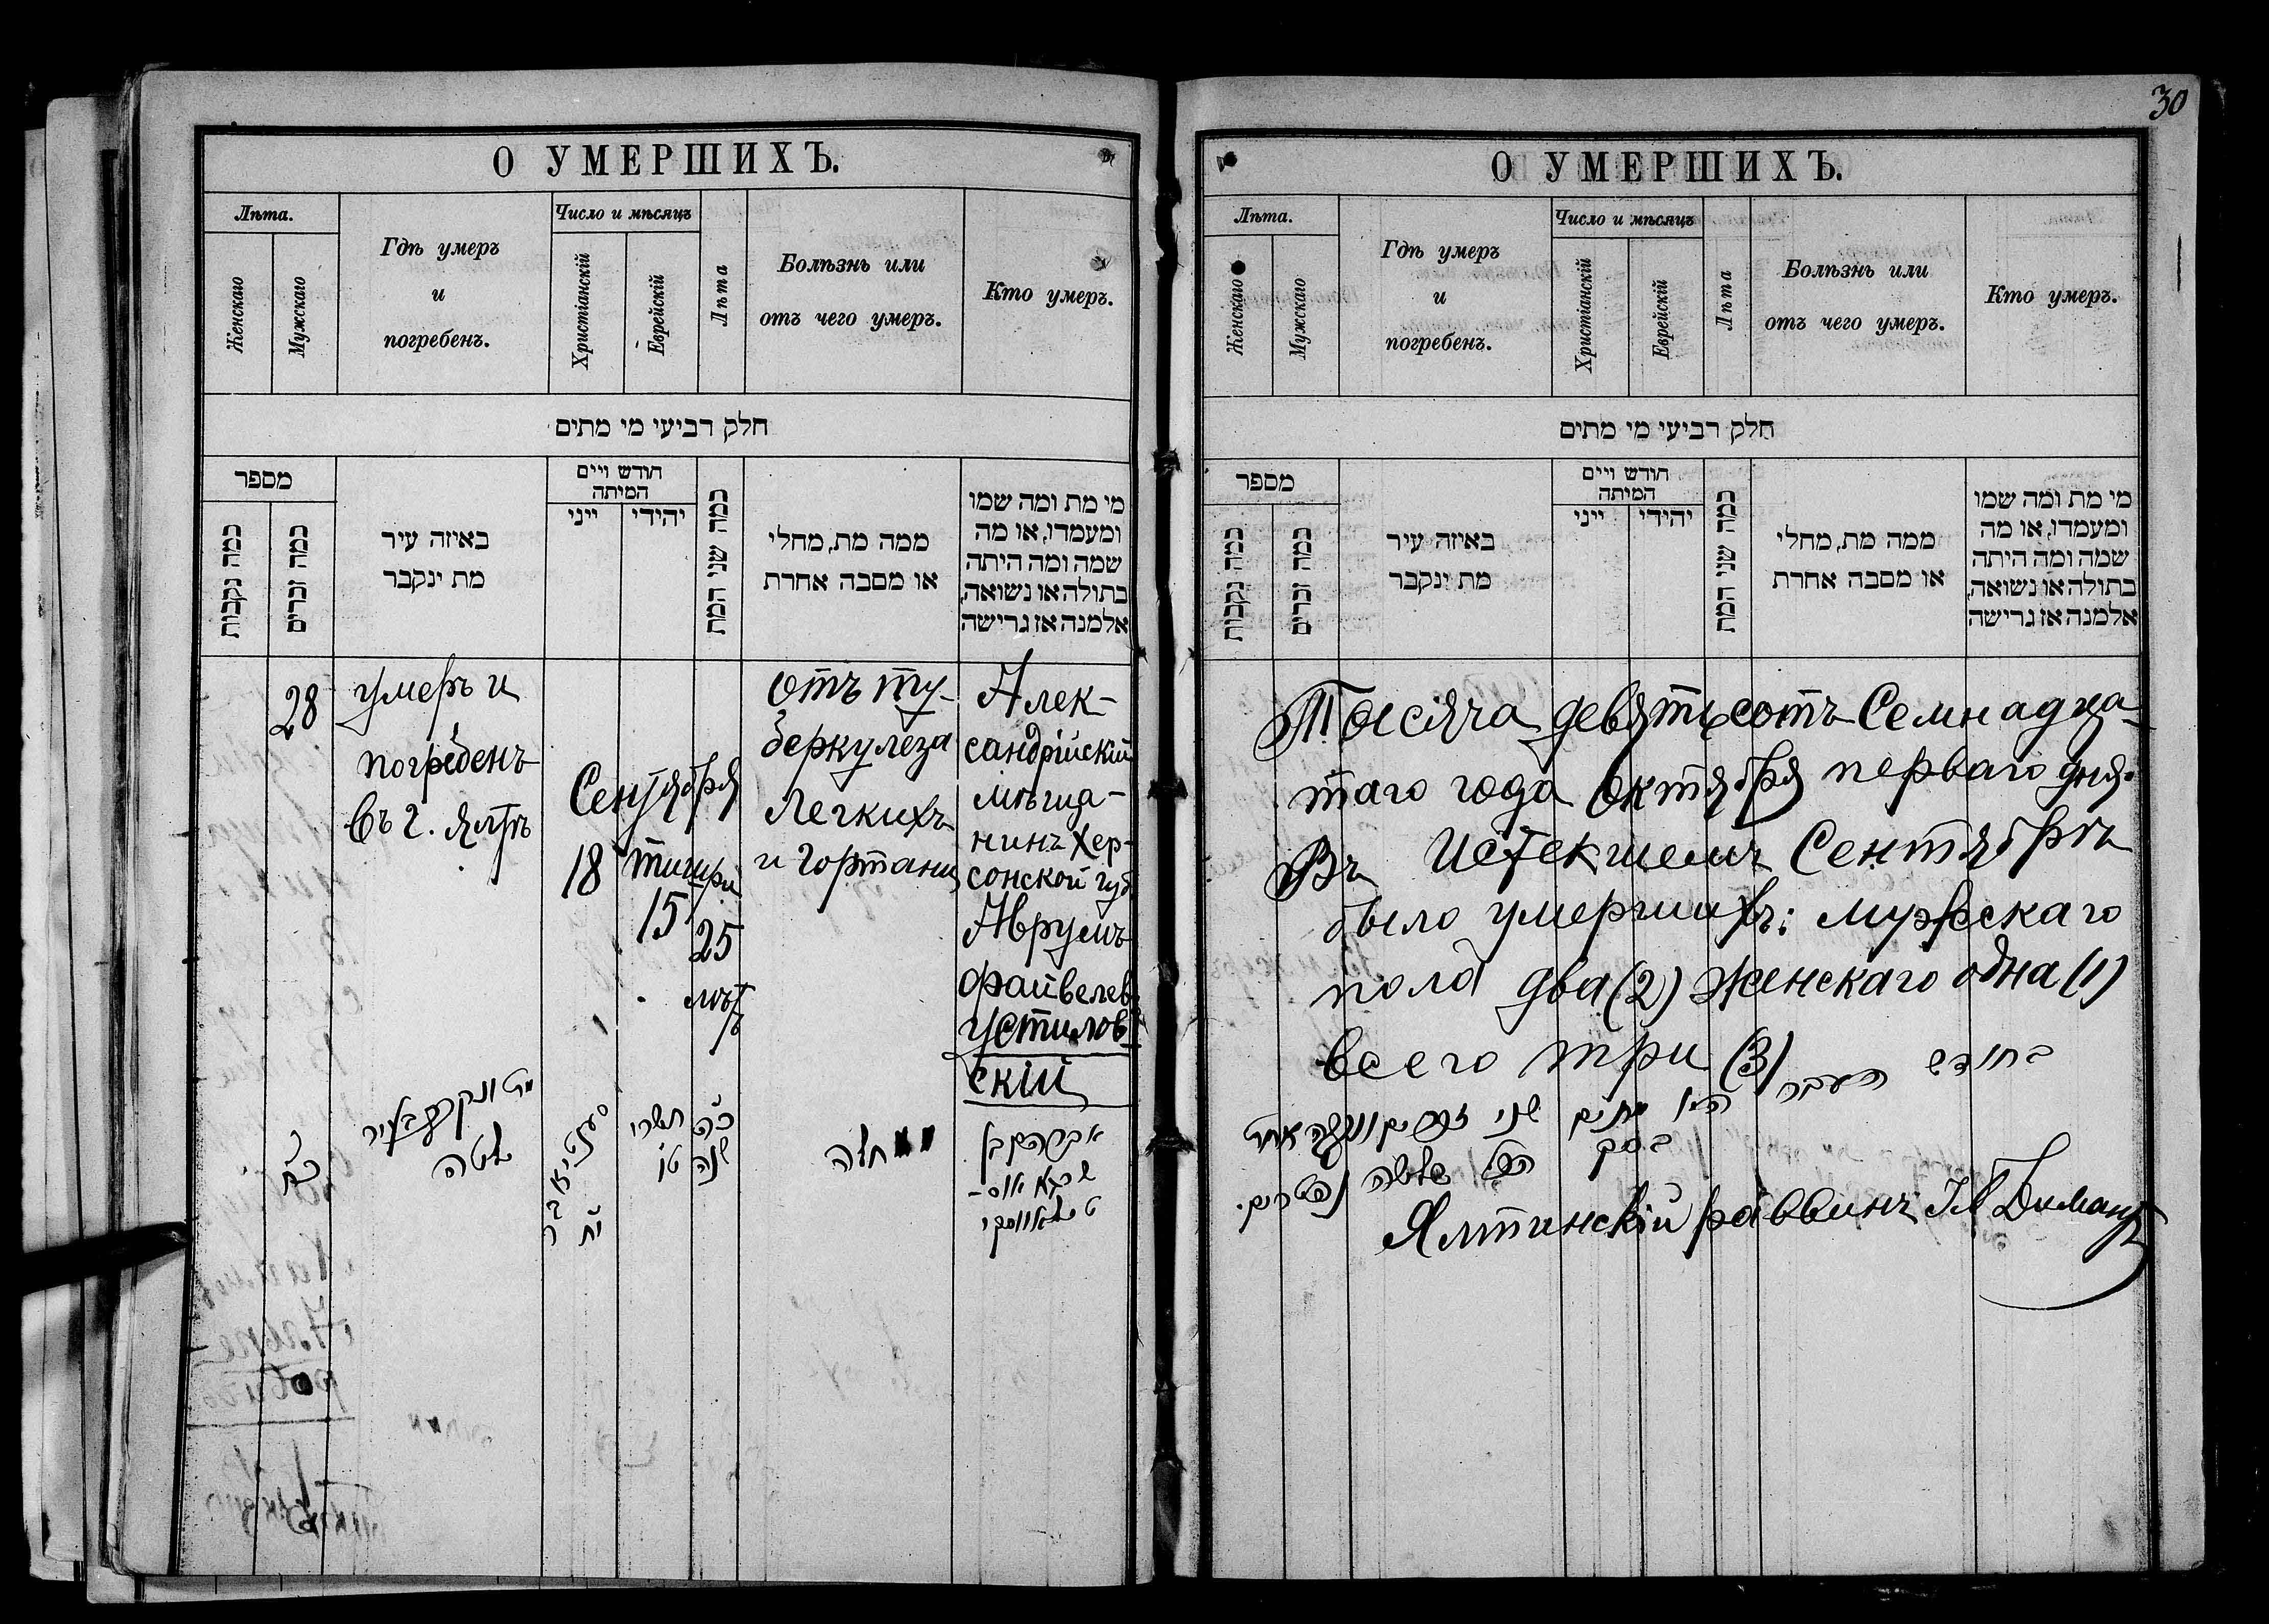 30
О УМЕРШИХЪ.
Лѣта.
Женскаго
Мужскаго
Гдѣ умеръ
и
погребенъ.
Число и мѣсяцъ
Христіанскій
Еврейскій
Лѣта
Болѣзнь или
отъ чего умеръ.
Кто умеръ.
חלק רביעי מי מתים
מספר
כמה נקבות
כמה זכרים
באיזה עיר
מת ינקבר
חודש ויים
המיתה
ייני
יהודי
כמה שני המת
ממה מת, מחלי
או מסבה אחרת
מי מת ומה שמו
ומעמדו, או מה
שמה ומה היתה
בתולה או נשואה,
אלמנה אז גרישה
28
умеръ и
погребенъ
въ г. Ялтѣ
Сентября
18
Тишри
15
25
лѣтъ
отъ ту-
беркулеза
Легкихъ
и Гортани
Алек-
сандрійскій
мѣща-
нинъ Хер-
сонской губ
Аврумъ
Файвелев
Устилов-
скій
כ״ח
יאלטה
י״ח
תשרי
ט״ו
כ״ה
שנה
О УМЕРШИХЪ.
Лѣта.
Женскаго
Мужскаго
Гдѣ умеръ
и
погребенъ.
Число и мѣсяцъ
Христіанскій
Еврейскій
Лѣта
Болѣзнь или
отъ чего умеръ.
Кто умеръ.
חלק רביעי מי מתים
מספר
כמה נקבות
כמה זכרים
באיזה עיר
מת ינקבר
חודש ויים
המיתה
ייני
יהודי
כמה שני המת
ממה מת, מחלי
או מסבה אחרת
מי מת ומה שמו
ומעמדו, או מה
שמה ומה היתה
בתולה או נשואה,
אלמנה אז גרישה
Тысяча девятьсотъ Семнадца-
таго года Октября перваго дня.
Въ Истекшемъ Сентябрѣ
было умершихъ: мужскаго
пола два (2) Женскаго одна (1)
всего три (3)
בחודש העבר
היו מתים שני
Ялтинскій раввинъ